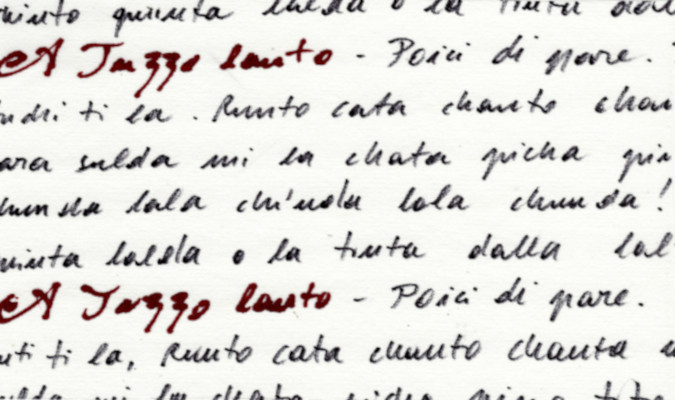 quinta lalda o la tinta dall
A Jazzo lanto - Poici di pare.
ti la. Runto cata chanto chan
ara salda mi la chata picha pin
lala chi'nola lola chunda!
ninta lalda o la tinta dalla lal
A Jazzo lanto - Poici di pare.
ti la, Runto cata chunto chanta
mi la chata picha